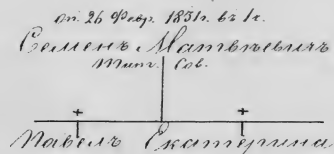 26 Февр. 1831г. въ 1г.
Семенъ Матвѣевичъ
Тит. Сов.
Павелъ Екатерина